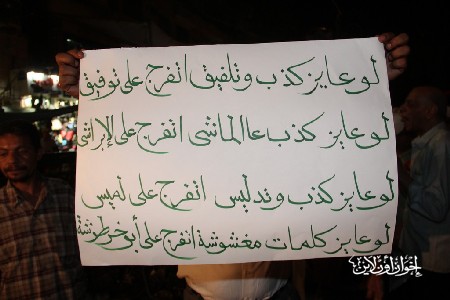 لو عايز كذب وتلفيق اتفرج على توفيق
لو عايز كذب عالماشى اتفرج على الإبراشى
لو عايز كذب وتدليس اتفرج على لميس
لو عايز كلمات مغشوشة اتفرج على أبو خرطوشة
إخوان أون لاين